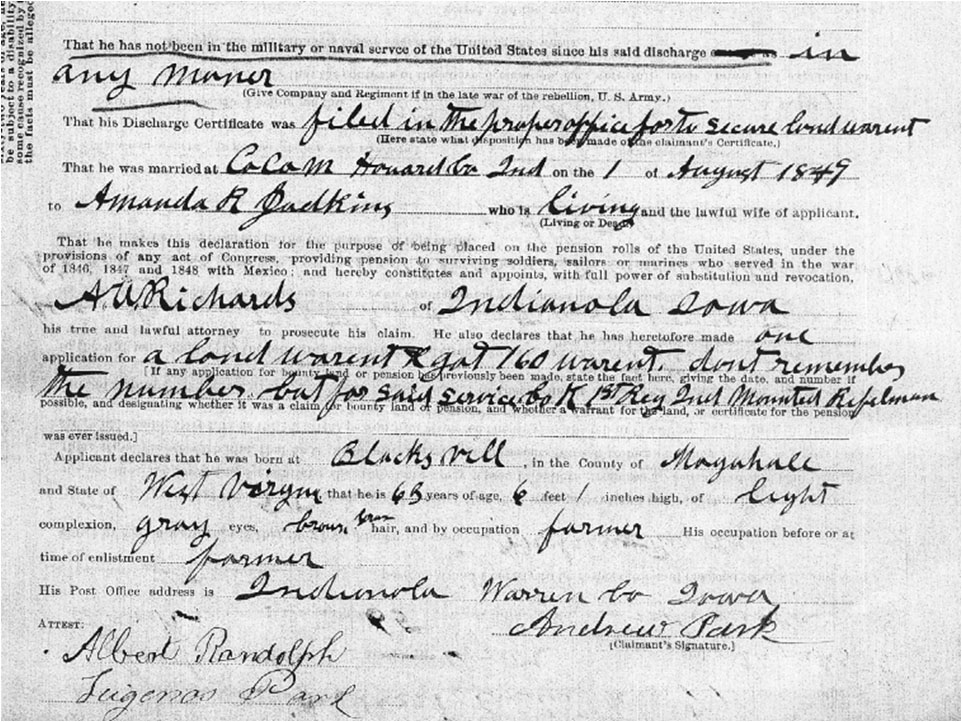 be subject to a disability
some cause recognized by
the facts must be alleged
That he has not been in the military or naval servce of the United States since his said discharge in
any maner
(Give Company and Regiment if in the late war of the rebellion, U. S. Army.)
That his Discharge Certificate was filed in the proper office for to secure lond warent
(Here state what disposition has been made of the claimant's Certificate.)
That he was married at CoCoM Houard Co Ind on the 1 of August 1849
to Amanda R who is living and the lawful wife of applicant.
(Living or Dead)
That he makes this declaration for the purpose of being placed on the pension rolls of the United States, under the
provisions of any act of Congress, providing pension to surviving soldiers, sailors or marines who served in the war
of 1846, 1847 and 1848 with Mexico; and hereby constitutes and appoints, with full power of substitution and revocation,
A.W. Richards of Indianola Iowa
his true and lawful attorney to prosecute his claim. He also declares that he has heretofore made one
application for a lond warent & got 160 warent. dont remember
[If any application for bounty land or pension has previously been made, state the fact here, giving the date, and number if
the number but for said service Co K 1st Reg 2nd Mounted Rifelman
possible, and designating whether it was a claim for bounty land or pension, and whether a warrant for the land, or certificate for the pension
was ever issued.]
Applicant declares that he was born at Blacks vell, in the County of Mogahale
and State of West that he is years of age, 6 feet 1 inches high, of light
complexion, gray eyes, brown hair, and by occupation farmer His occupation before or at
time of enlistment farmer
His Post Office address is Indianola Warren Co Iowa
ATTEST: Andrew Park
[Claimant's Signature.]
Albert Randolph